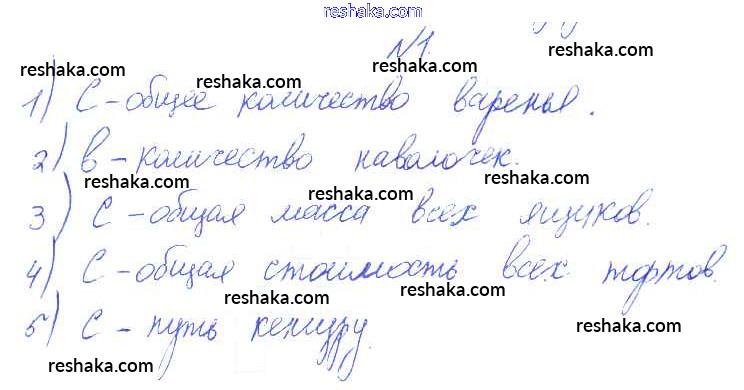 reshaka.com
№1.
reshaka.com reshaka.com reshaka.com
1) С - общее количество варенья.
reshaka.com reshaka.com
2) в - количество наволочек.
reshaka.com reshaka.com reshaka.com
3) С - общая масса всех ящиков.
reshaka.com reshaka.com
4) С - общая стоимость всех тортов.
reshaka.com reshaka.com reshaka.com
5) С - путь кенгуру.
reshaka.com reshaka.com